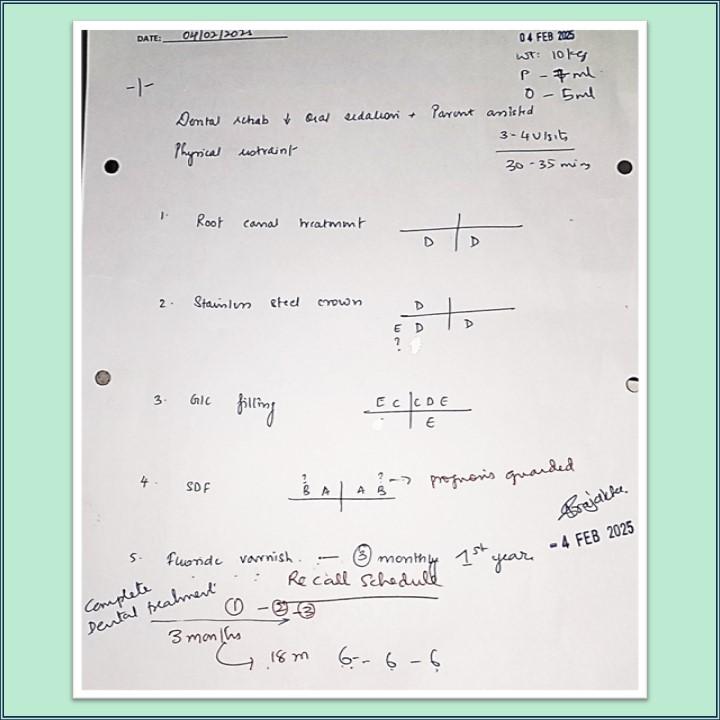 DATE: 04/02/2025
04 FEB 2025
WT: 10 kg
P - 7 ml
O - 5 ml
Dental rehab ↓ Oral sedation + Parent assisted
Physical restraint
3-4 visits
30-35 mins
1. Root canal treatment
D | D
2. Stainless steel crown
D
E D | D
?
3. GIC filling
E C | C D E
E
4. SDF
? ?
B A | A B → prognosis guarded
- 4 FEB 2025
5. Fluoride varnish. — ③ monthly 1st year
Recall Schedule
Complete
Dental treatment
① - ② - ③
3 months
18 m 6 - 6 - 6